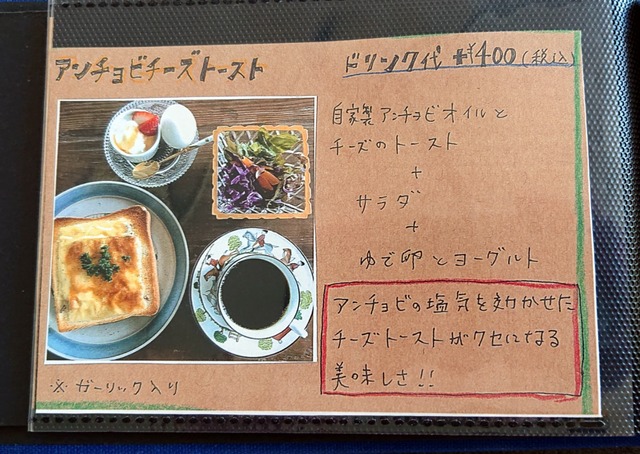 アンチョビチーズトースト
ドリンク代 +¥400(税込)
自家製アンチョビオイルと
チーズのトースト
+
サラダ
+
ゆで卵とヨーグルト
アンチョビの塩気を効かせた
チーズトーストがクセになる
美味しさ!!
※ ガーリック入り